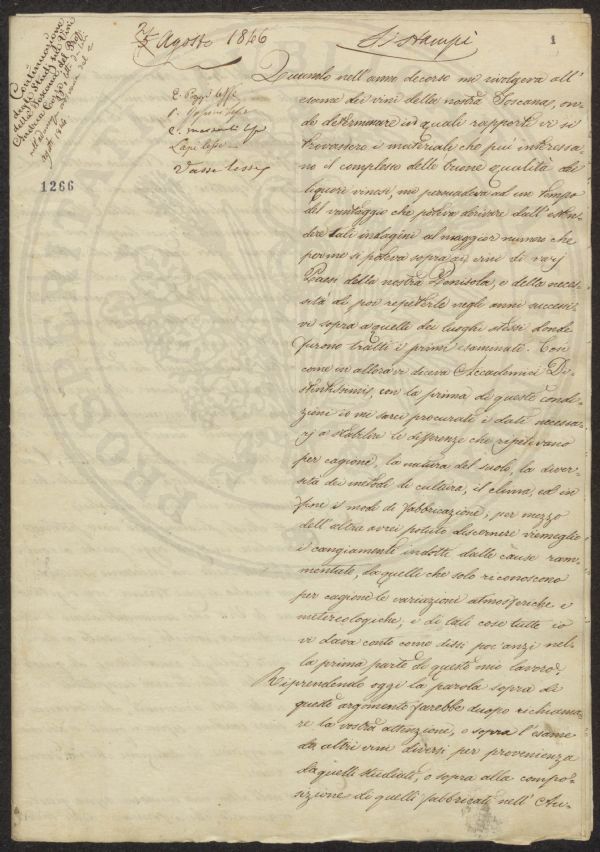 Agosto 1846
Si stampi
1
Continuazione
degli Studj sui Vini
della Toscana del Prof.
Andrea Cozzi
agosto 1846
1266
Quando nell'anno decorso mi rivolgeva all'
esame dei vini della nostra Toscana, on-
de determinare in quali rapporti vi si
trovassero i materiale che più interessa-
no il complesso delle buone qualità dei
liquori vinosi, mi persuadeva ad un tempo
del vantaggio che poteva derivare dall'esten-
dere tali indagini al maggior numero che
per me si poteva sopra ai vini di varj
Paesi della nostra Penisola, e della neces-
sità di poi repeterle negli anni successi-
vi sopra a quelle dei luoghi stessi donde
furono tratti i primi esaminati. Con
come in allora vi diceva Accademici Di-
stintissimi, con la prima di queste condi-
zioni io mi sarei procurati i dati necessa-
rj a stabilire le differenze che ripetevano
per cagione, la natura del suolo, la diver-
sità dei metodi di cultura, il clima, ed in
fine il modo di fabbricazione; per mezzo
dell'altra avrei potuto discernere vie meglio
i cangiamenti indotti dalle cause ram-
mentate, da quelli che solo riconoscono
per cagione le variazioni atmosferiche e
metereologiche, e di tali cose tutte io
vi dava conto come dissi poc'anzi nel-
la prima parte di questo mio lavoro.
Riprendendo oggi la parola sopra di
questo argomento farebbe duopo richiama-
re la vostra attenzione, o sopra l'esame
da altri vini diversi per provenienza
da quelli studiati, o sopra alla compo-
sizione di quelli fabbricati nell'Au-